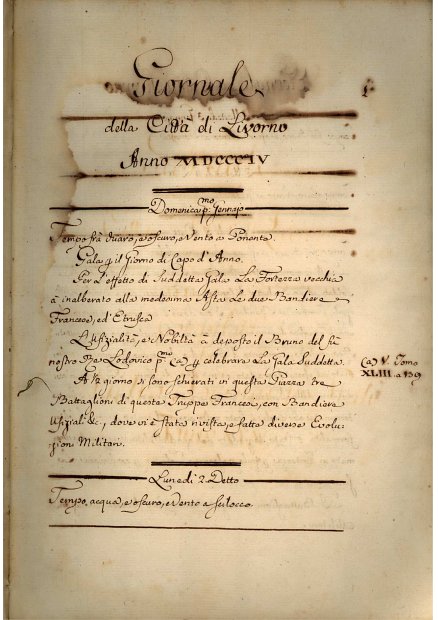 Giornale
1
della Città di Livorno
Anno MDCCCIV
Domenica p.mo Gennajo
Tempo frà chiaro, e oscuro, e Vento a Ponente.
Gala p il Giorno di Capo d'Anno.
Per L'effetto di Suddetta Gala La Fortezza vecchia
à inalberato alla medesima Asta Le due Bandiere
Francese, ed'Etrusca
L'Ufizialità, e Nobiltà à deposto il Bruno del fù
nostro Re Lodovico p.mo (a) p celebrare La Gala Suddetta.
(a) V. Tomo
XLIII. a 139
A ½ giorno si sono schierati in questa Piazza tre
Battaglioni di queste Truppe Francesi, con Bandiere
Ufiziali &c., dove vi è stata rivista, e fatte diverse Evolu-
zioni Militari.
Lunedì 2. Detto
Tempo, acqua, e oscuro, e Vento a Scilocco.